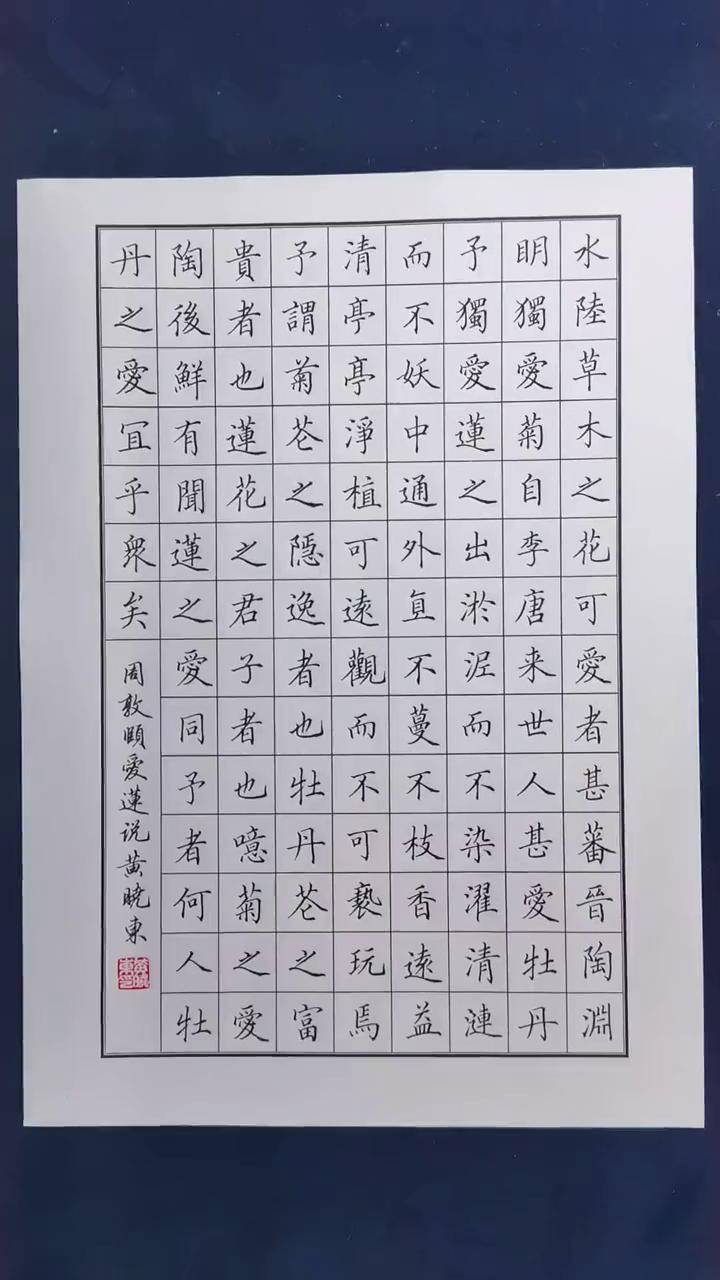 水陸草木之花可愛者甚蕃晉陶淵
明獨愛菊自李唐来世人甚愛牡丹
予獨愛蓮之出淤泥而不染濯清漣
而不妖中通外直不蔓不枝香遠益
清亭亭淨植可遠觀而不可褻玩焉
予謂菊花之隱逸者也牡丹花之富
貴者也蓮花之君子者也噫菊之愛
陶後鮮有聞蓮之愛同予者何人牡
丹之愛宜乎眾矣
周敦頤愛蓮说黄曉東